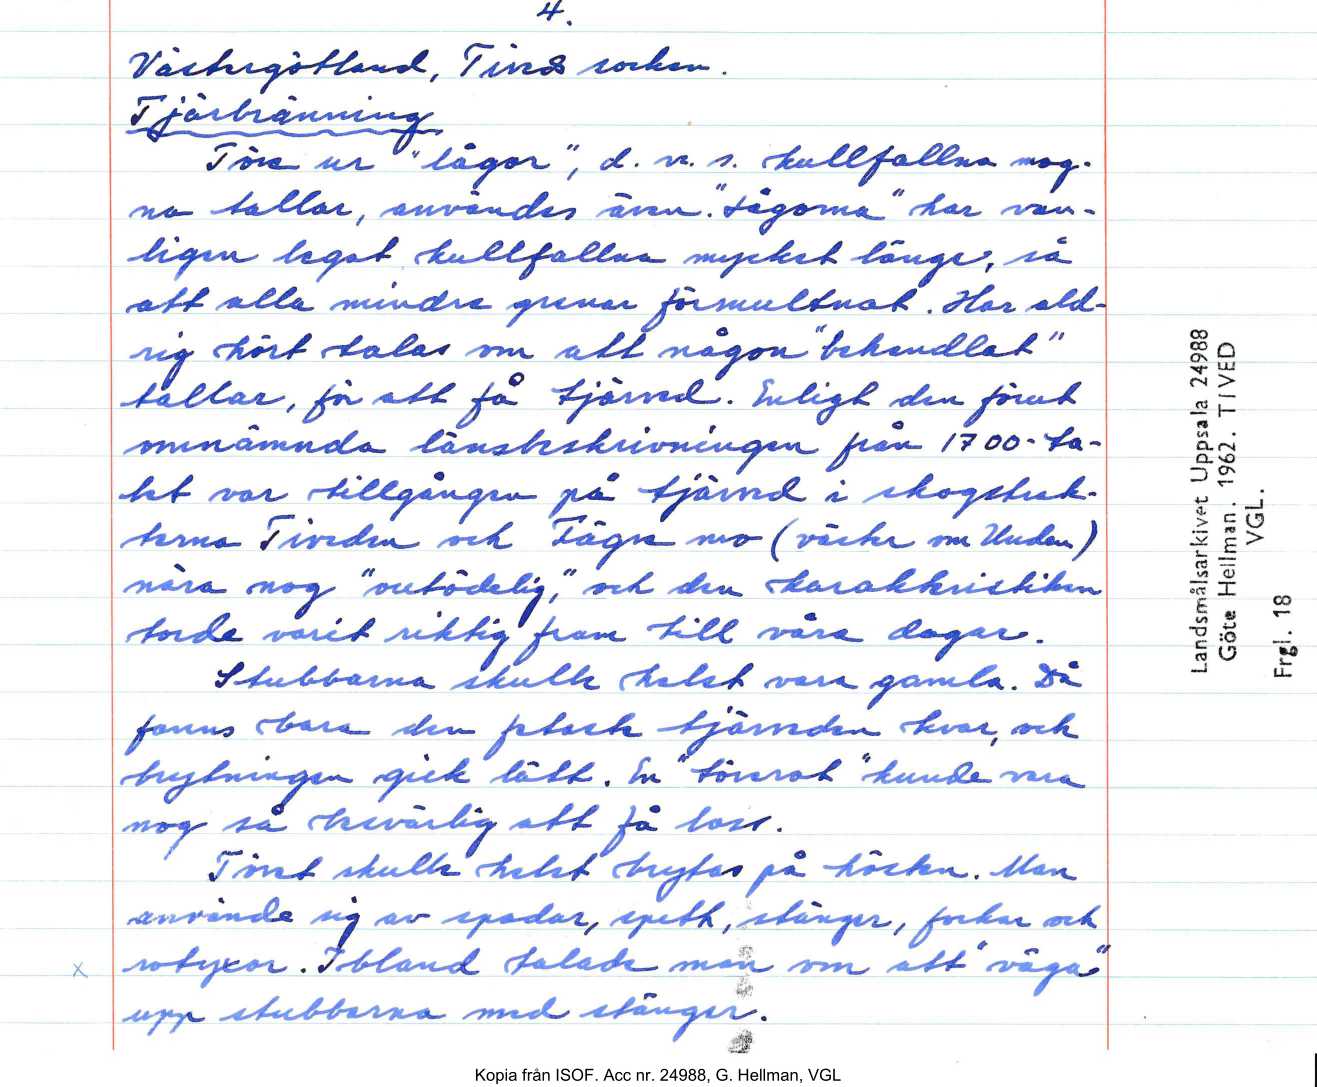 4.
Västergötland, Tiveds socken.
Tjärbränning
Töre ur "lågor", d. v. s. kullfallna mog-
na tallar, användes även. "Lågorna" har van-
ligen legat kullfallna mycket länge, så
att alla mindre grenar förmultnat. Har ald-
rig hört talas om att någon "behandlat"
tallar, för att få tjärved. Enligt den förut
omnämnda länsbeskrivningen från 1700-ta-
let var tillgången på tjärved i skogstrak-
terna Tiveden och Fägre mo (väster om Unden)
nära nog "outödelig," och den karakteristiken
torde varit riktig fram till våra dagar.
Stubbarna skulle helst vara gamla. Då
fanns bara den feta tjärveden kvar, och
brytningen gick lätt. En "törerot" kunde vara
nog så besvärlig att få loss.
Töret skulle helst brytas på hösten. Man
använde sig av spadar, spett, stänger, forkar och
x rotyxor. Ibland talade man om att "väga"
upp stubbarna med stänger.
Landsmålsarkivet Uppsala 24988
Göte Hellman. 1962. TIVED
VGL.
Frgl. 18
Kopia från ISOF. Acc nr. 24988, G. Hellman, VGL